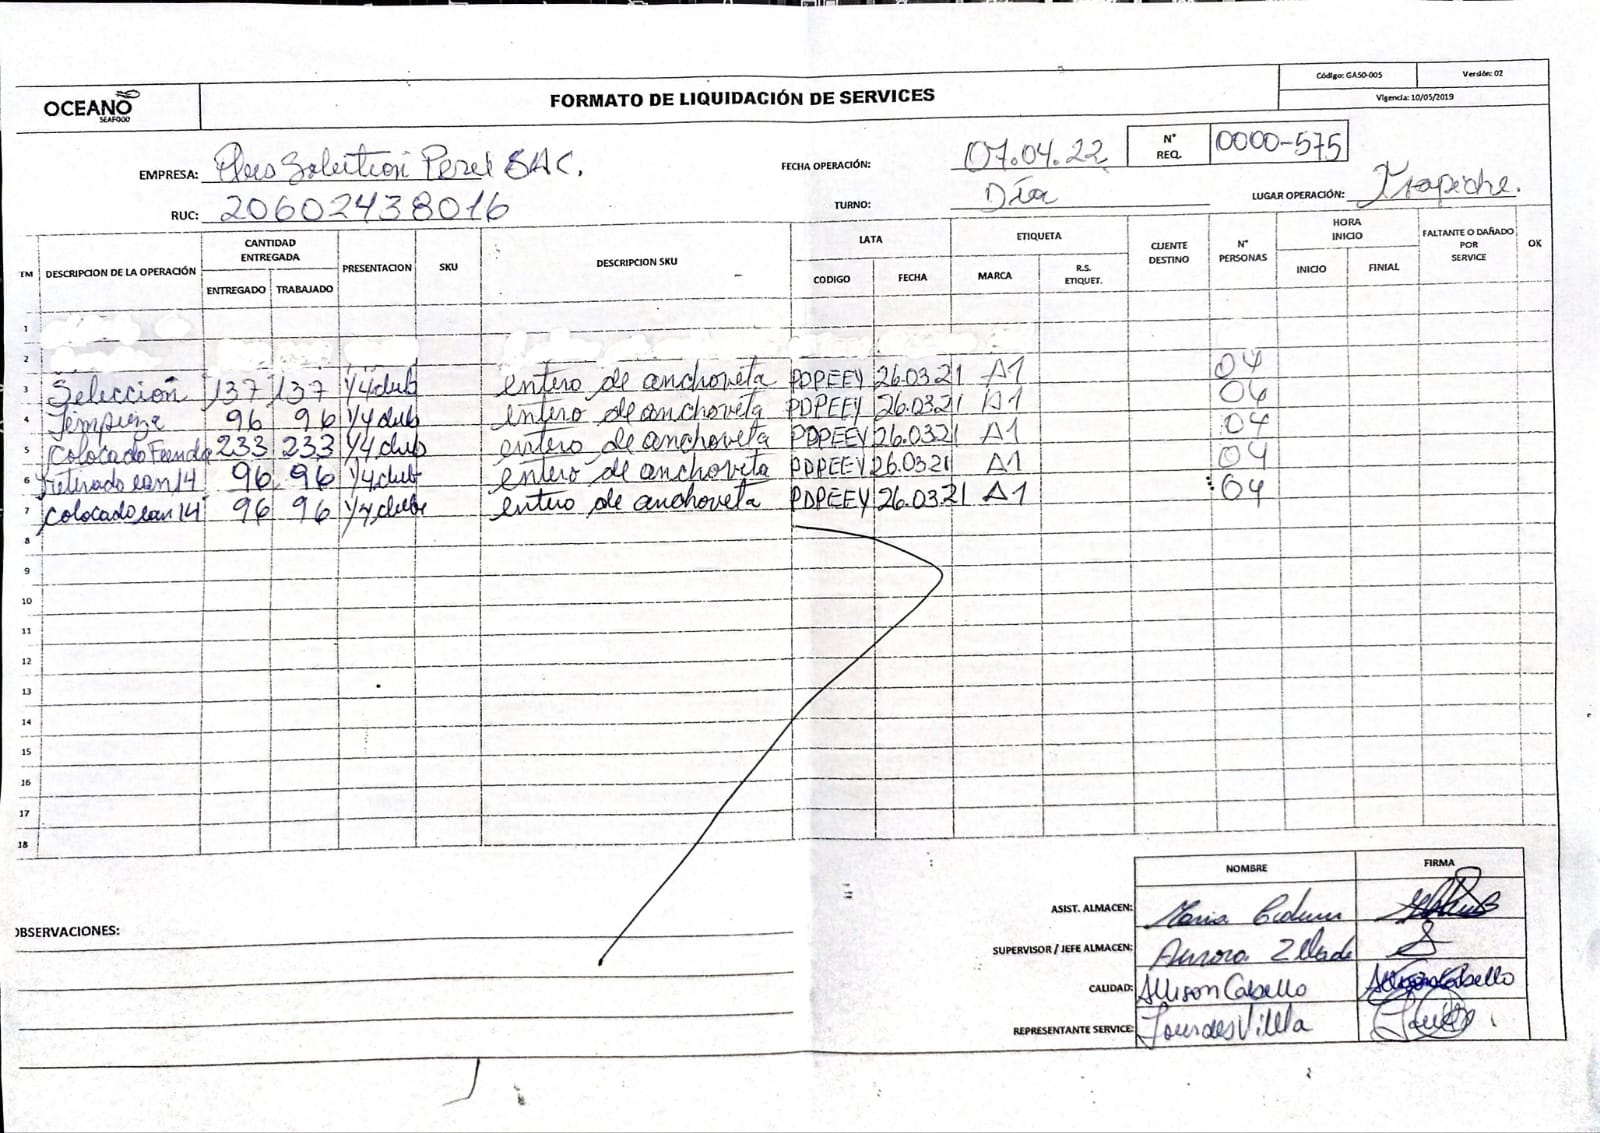 Código: GA50-005 Versión: 02
Vigencia: 10/05/2019
OCEANO
SEAFOOD
FORMATO DE LIQUIDACIÓN DE SERVICES
EMPRESA: Plus Solution Perú SAC.
FECHA OPERACIÓN: 07.04.22
N° REQ. 0000-575
RUC: 20602438016
TURNO: Día
LUGAR OPERACIÓN: Trapiche.
TEM DESCRIPCION DE LA OPERACIÓN CANTIDAD ENTREGADA PRESENTACION SKU DESCRIPCION SKU LATA ETIQUETA CLIENTE DESTINO N° PERSONAS HORA INICIO FALTANTE O DAÑADO POR SERVICE OK
ENTREGADO TRABAJADO CODIGO FECHA MARCA R.S. ETIQUET. INICIO FINIAL
1
2
3 Selección 137 137 1/4 club entero de anchoveta PDPEEY 26.03.21 A1 04
4 Limpieza 96 96 1/4 club entero de anchoveta PDPEEY 26.03.21 A1 04
5 Colocado Funda 233 233 1/4 club entero de anchoveta PDPEEY 26.03.21 A1 04
6 retirado ean 14 96 96 1/4 club entero de anchoveta PDPEEY 26.03.21 A1 04
7 colocado ean 14 96 96 1/4 club entero de anchoveta PDPEEY 26.03.21 A1 04
8
9
10
11
12
13
14
15
16
17
18
NOMBRE FIRMA
ASIST. ALMACEN: Maria
SUPERVISOR / JEFE ALMACEN: Aurora
CALIDAD: Allison Cabello Allison Cabello
REPRESENTANTE SERVICE: Lourdes Villla
OBSERVACIONES: